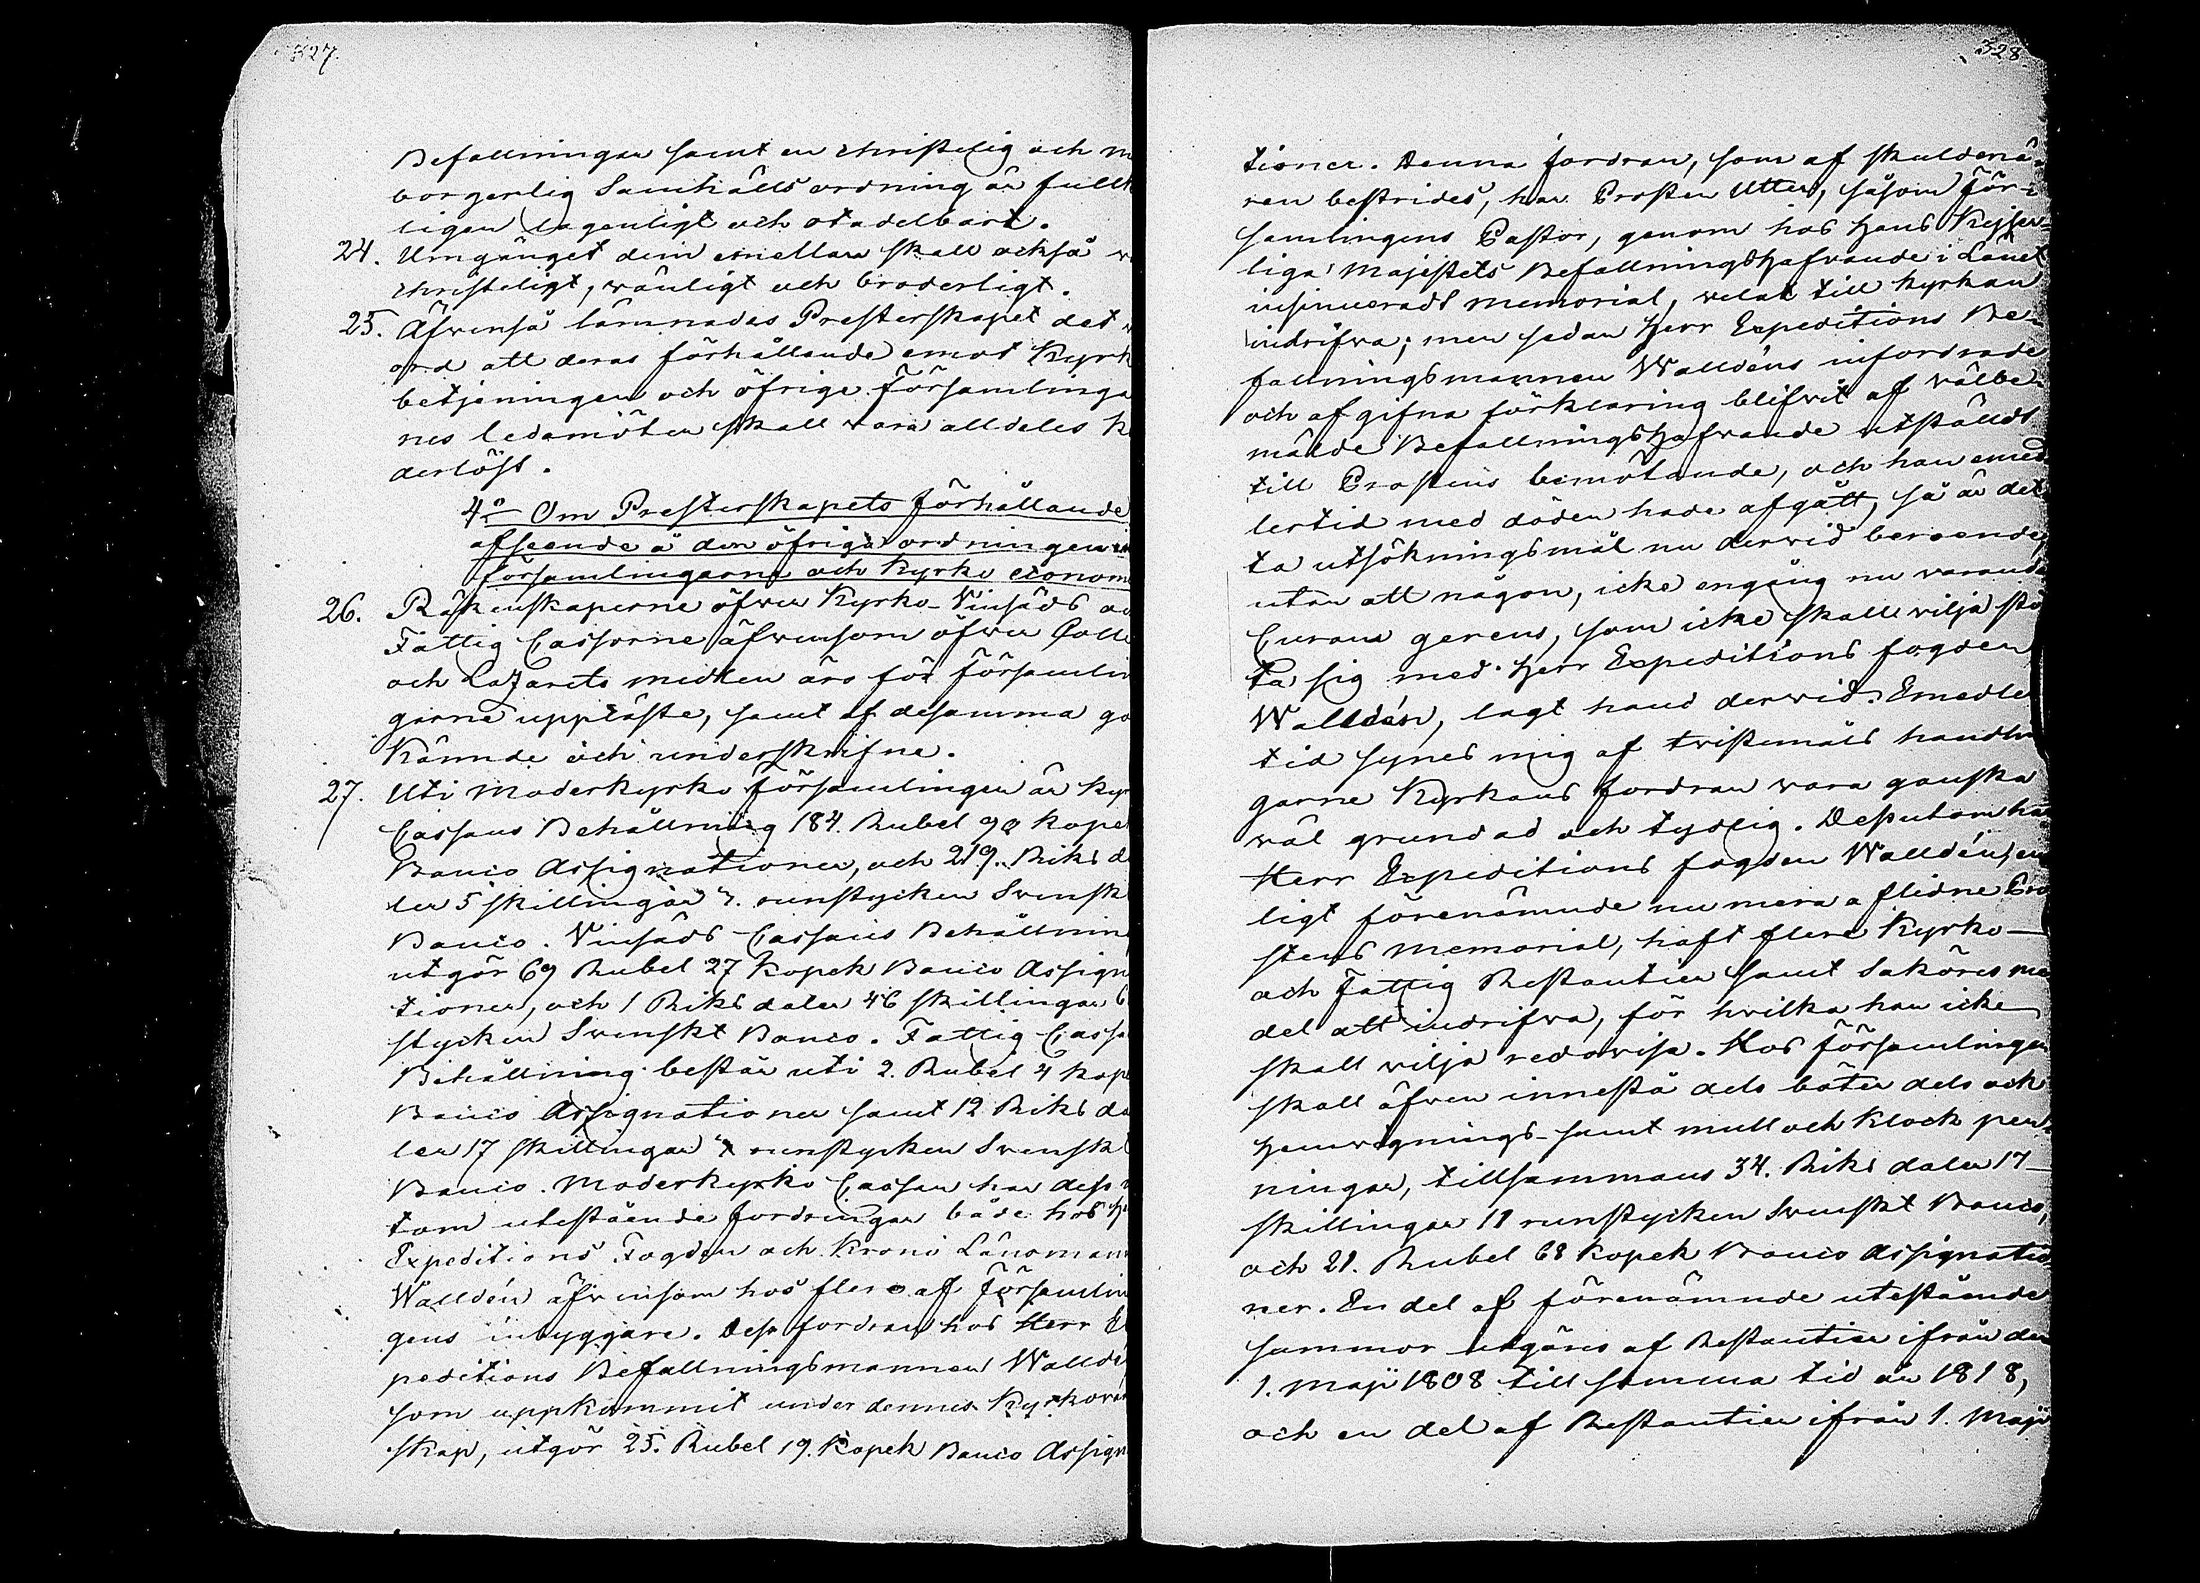 327.
Befallningar samt en christelig och
borgerlig Samhälls ordning är full
ligen lagenligt och otadelbart.
24. Umgänget dem emellan skall också
christeligt, vänligt och broderligt.
25. Äfvenså lämnades Presterskapet det
ord att deras förhållande emot Kyrk
betjeningen och öfrige Församlinga
nes ledamöter skall vara alldeles k
derlöst.
4o Om Presterskapets förhållande
afseende å den öfriga ordningen i
församlingarne och Kyrko econom
26. Räkenskaperne öfver Kyrko- Vinsäds
Fattig Cassorne äfvensom öfver Coll
och Lazarets medlen äro för Församlin
garne uppläste, samt af desamma go
kännde och underskrifne.
27. Uti Moderkyrko församlingen är Kyr
Cassans Behållning 184. Rubel 90 kope
Banco Assignationer, och 219. Riks da
ler 5 skillingar 7. runstycken Svensk
Banco. Vinsäds Cassans Behållnin
utgör 69 Rubel 27 kopek Banco Assign
tioner, och 1 Riksdaler 46 skillingar 6
stycken Svenskt Banco. Fattig Cassa
Behållning består uti 2. Rubel 4 kop
Banco Assignationer samt 12 Riks da
ler 17 skillingar runstycken Svensk
Banco. Moderkyrko Cassan har dess
tom utestående fordringar både hos
Expeditions Fogden och Krono Länsman
Walldén äfvensom hos flere af Församlin
gens inbyggare. Dess fordran hos Herr E
peditions Befallningsmannen Walldé
som uppkommit under dennes Kyrkovär
skap, utgör 25. Rubel 19. kopek Banco Assign
328.
tioner. Denna fordran, som af skuldenä-
ren bestrides, har Prosten Utter, såsom För-
samlingens Pastor, genom hos Hans Kejser-
liga Majestets Befallningshafvande i Länet
insinueradt Memorial, velat till kyrkan
indrifva; men sedan Herr Expeditions Be-
fallningsmannen Walldéns infordrade
och afgifna förklaring blifvit af välbe-
mälde Befallningshafvande utställdt
till Prostens bemötande, och han emed-
lertid med döden hade afgått, så är det
ta utsökningsmål nu dervid beroende,
utan att någon, icke engång nu varande
Curam gerens, som icke skall vilja stö
ta sig med Herr Expeditions fogden
Walldén, lagt hand dervid. Emedler
tid synes mig af tvistemåls handlin
garne Kyrkans fordran vara ganska
väl grundad och tydlig. Dessutom har
Herr Expeditions fogden Walldén, en
ligt förenämnde nu mera aflidne Pro
stens Memorial, haft flere Kyrko-
och Fattig Restantier samt Saköres me
del att indrifva, för hvilka han icke
skall vilja redovisa. Hos Församlingen
skall äfven innestå dels böter dels ock
Hemvignings- samt mull och klock pen-
ningar, tillsammans 34. Riks daler 17
skillingar 11 runstycken Svenskt Banco,
och 21. Rubel 68 kopek Banco Assignatio
ner. En del af förenämnde utestående
summor utgöres af Restantier ifrån den
1. Maji 1808 till samma tid år 1818,
och en del af Restantier ifrån 1. Maji